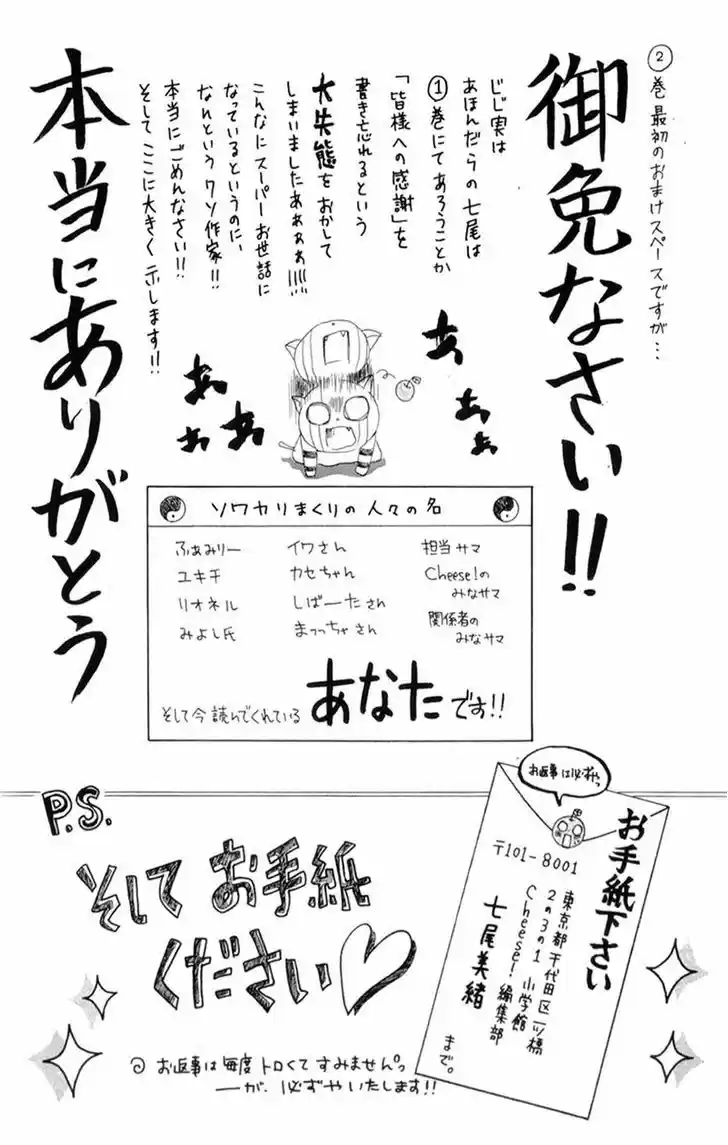 ②巻 最初のおまけスペースですが…
御免なさい!!
じじ実は
あほんだらの七尾は
①巻にてあろうことか
「皆様への感謝」を
書き忘れるという
大失態をおかして
しまいましたあぁぁぁ!!!!!
こんなにスーパーお世話に
なっているというのに、
なんというクソ作家!!
本当にごめんなさい!!
そしてここに大きく示します!!
本当にありがとう
あ
あ
ぁ
あ
あ
あ
ソワカリまくりの人々の名
ふぁみりー
ユキチ
リオネル
みよし氏
イワさん
カセちゃん
しばーたさん
まっっちゃさん
担当サマ
Cheese!の
みなサマ
関係者の
みなサマ
そして今読んでくれている あなたです!!
P.S.
そしてお手紙
ください♡
お返事は必ずやっ
お手紙下さい
〒101-8001
東京都千代田区一ツ橋
2の3の1 小学館
Cheese!編集部
七尾美緒
まで。
お返事は毎度トロくてすみませんっ
ーが、必ずやいたします!!